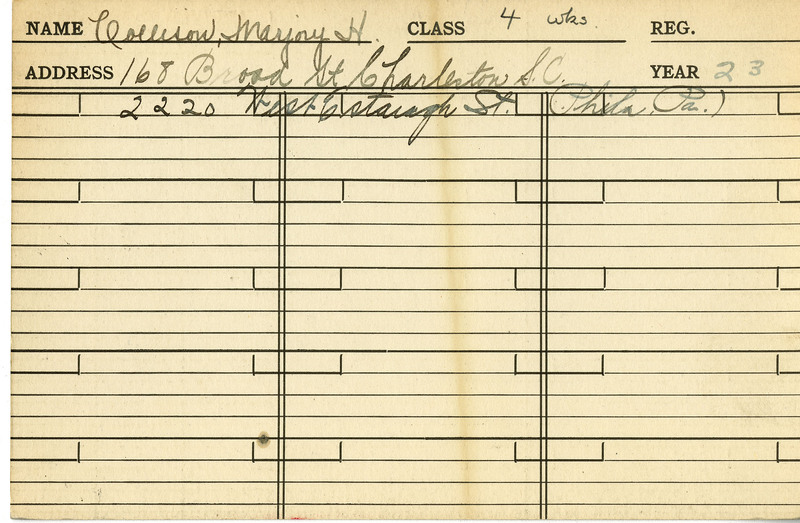 NAME Collison, Marjory H. CLASS 4 wks. REG.
ADDRESS 168 Broad St Charleston S.C. YEAR 23
2220 West Estaugh St. (Phila, Pa.)